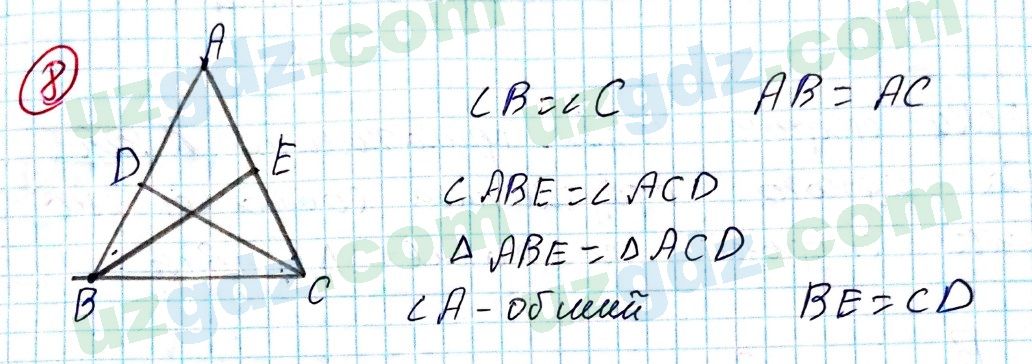 8
A
D
E
B
C
∠B=∠C AB=AC
∠ABE=∠ACD
∆ABE=∆ACD
∠A-общий BE=CD
uzgdz.com
uzgdz.com
uzgdz.com
uzgdz.com
uzgdz.com
uzgdz.com